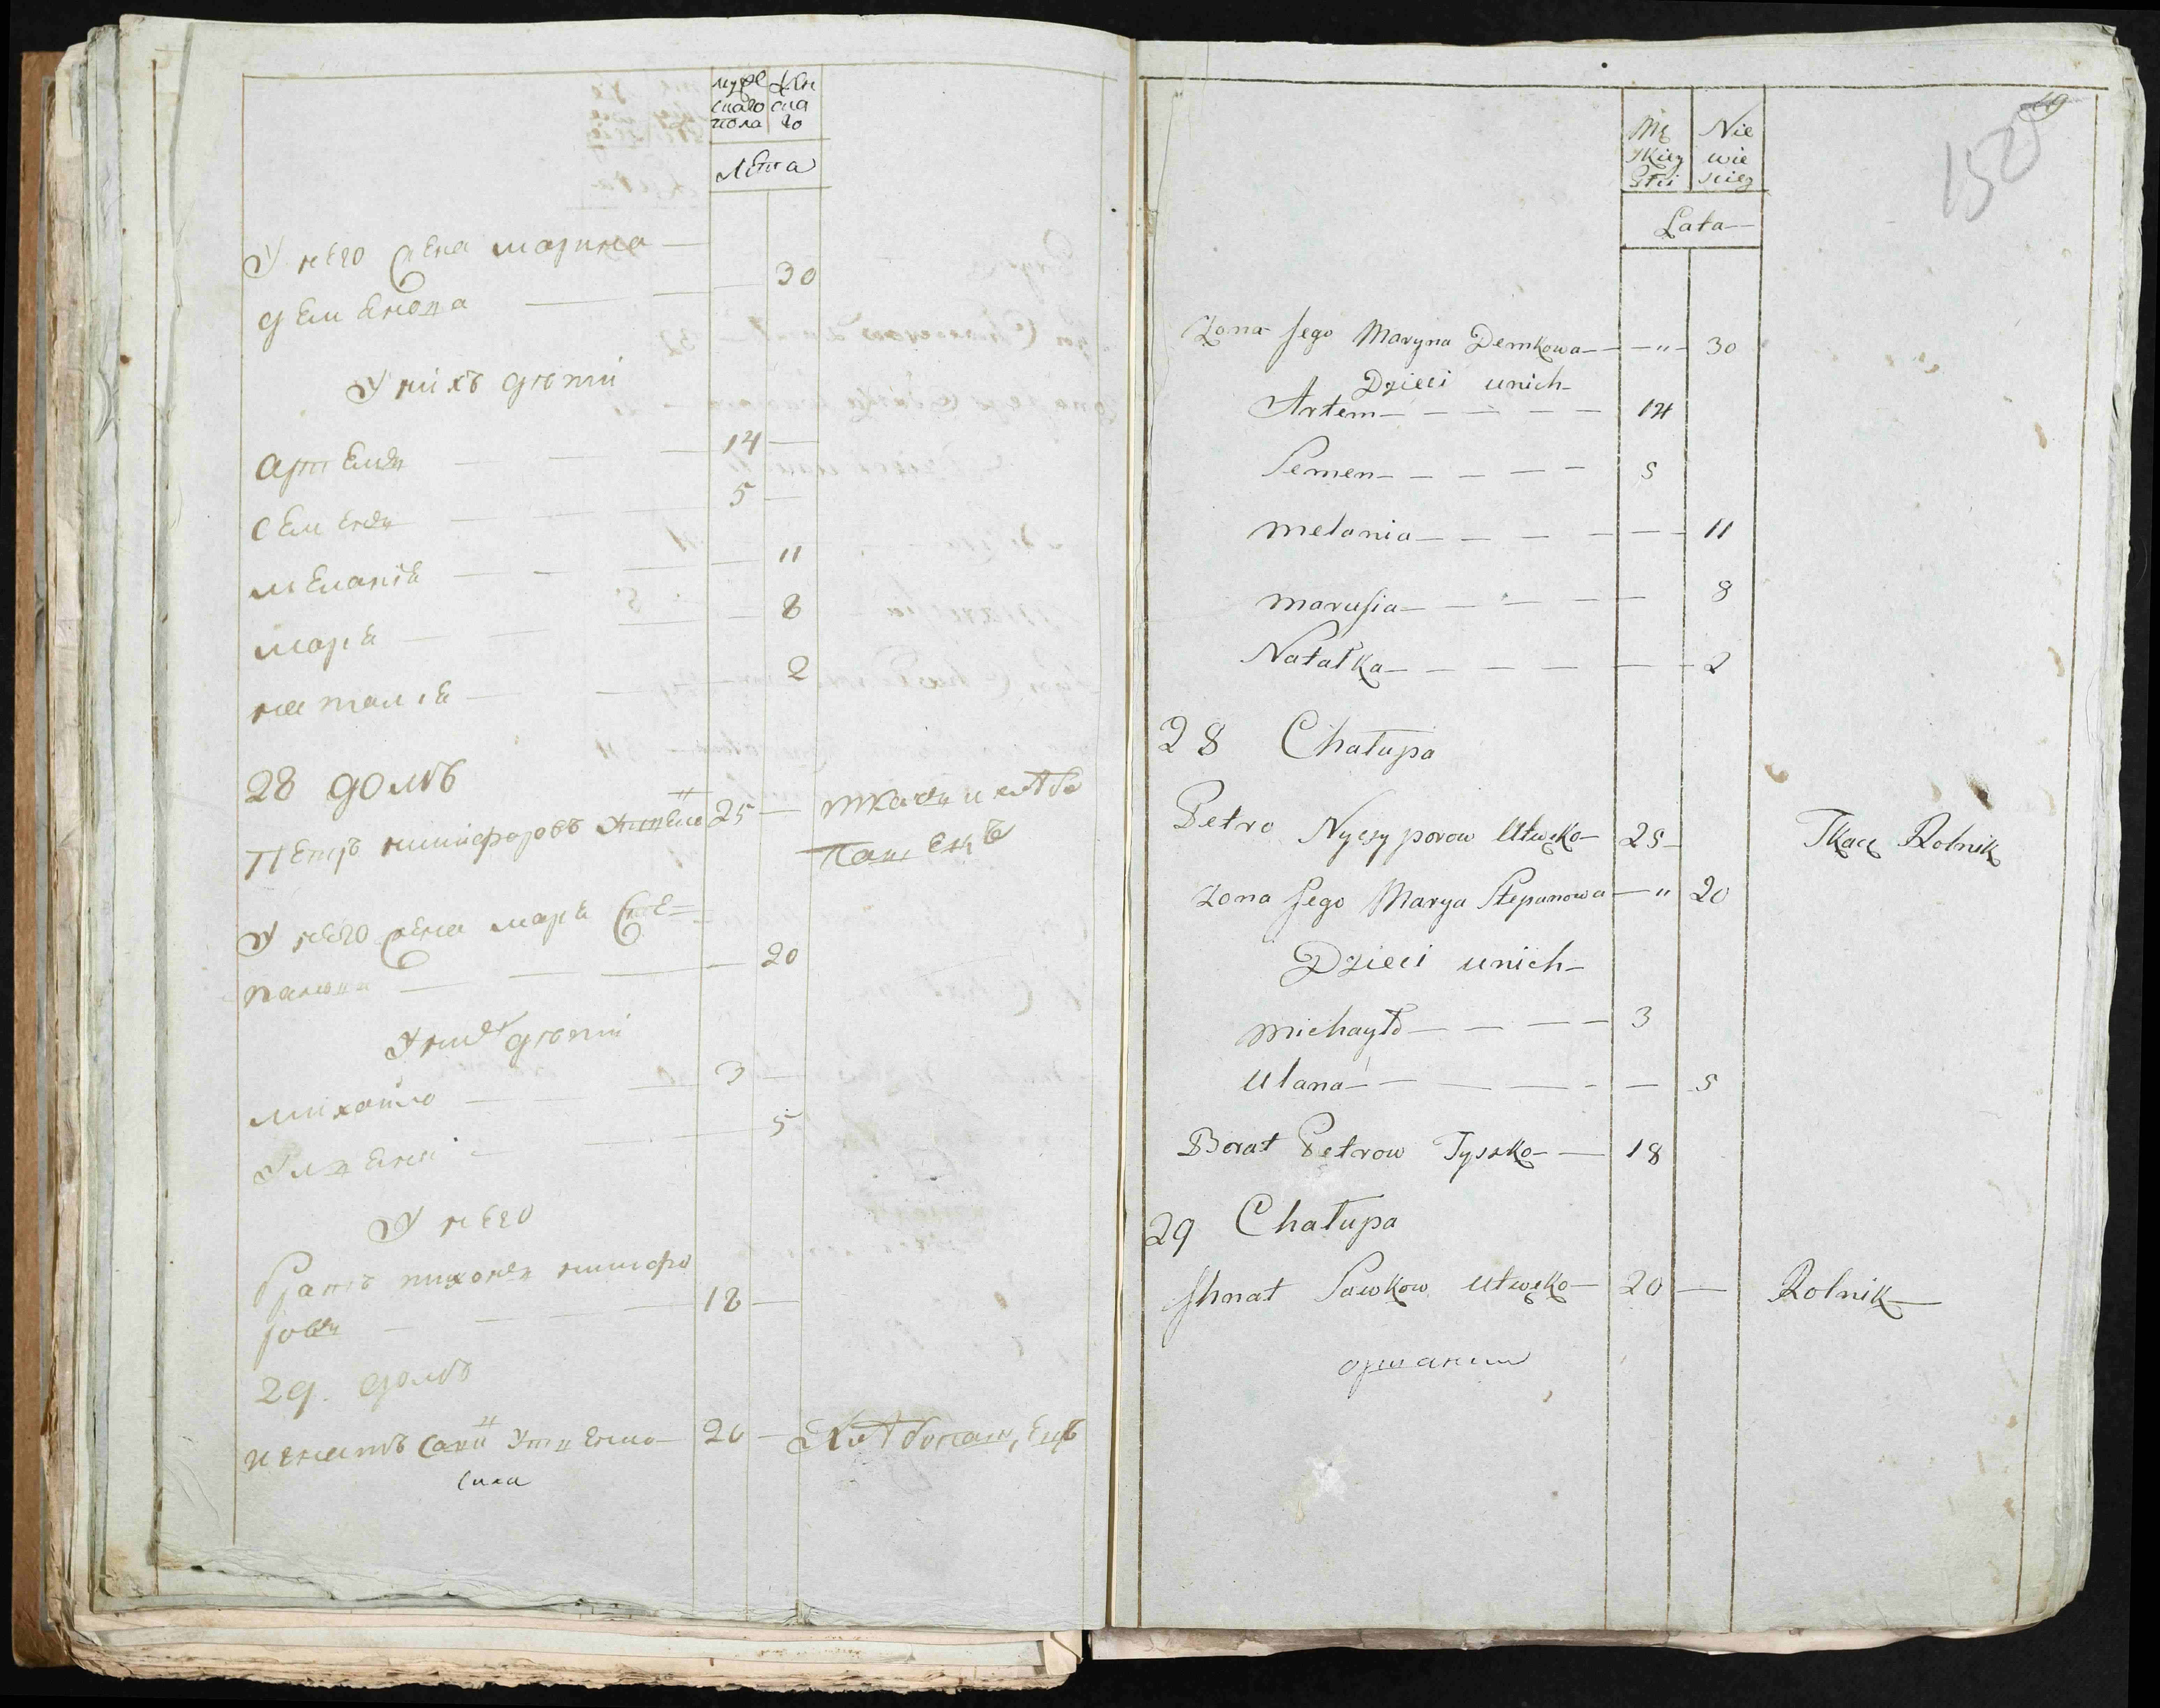 мужескаго пола
женскаго
Лѣта
У него жена марина — 30
деменова
У нихъ дѣти
артемъ — 14
семенъ — 5
меланіа — 11
маріа — 8
наталіа — 2
28 домъ
Петръ никифоровъ 25 — ткачъ и хлѣбо
пашецъ
У него жена маріа сте=
панова — 20
У нихъ дѣти
михайло — 3
5
У него
братъ тихонъ никифо
ровъ — 18
29. домъ
игнатъ 20 — Хлѣбопашецъ
Mę
skiey
Płci
Nie
wie
sciey
Lata
152
Zona Jego Maryna Demkowa — " — 30
Dzieci unich
Artem — 14
Semen — 5
melania — 11
marusia — 8
Natałka — 2
28 Chałupa
Petro Nyczyporow Utwęko — 25 Tkacz Rolnik
Zona Jego Marya Stepanowa — " 20
Dzieci unich
michayło — 3
Ulana — 5
Borat Petrow Tyszko — 18
29 Chałupa
Ihnat Sawkow Utwęko — 20 — Rolnik